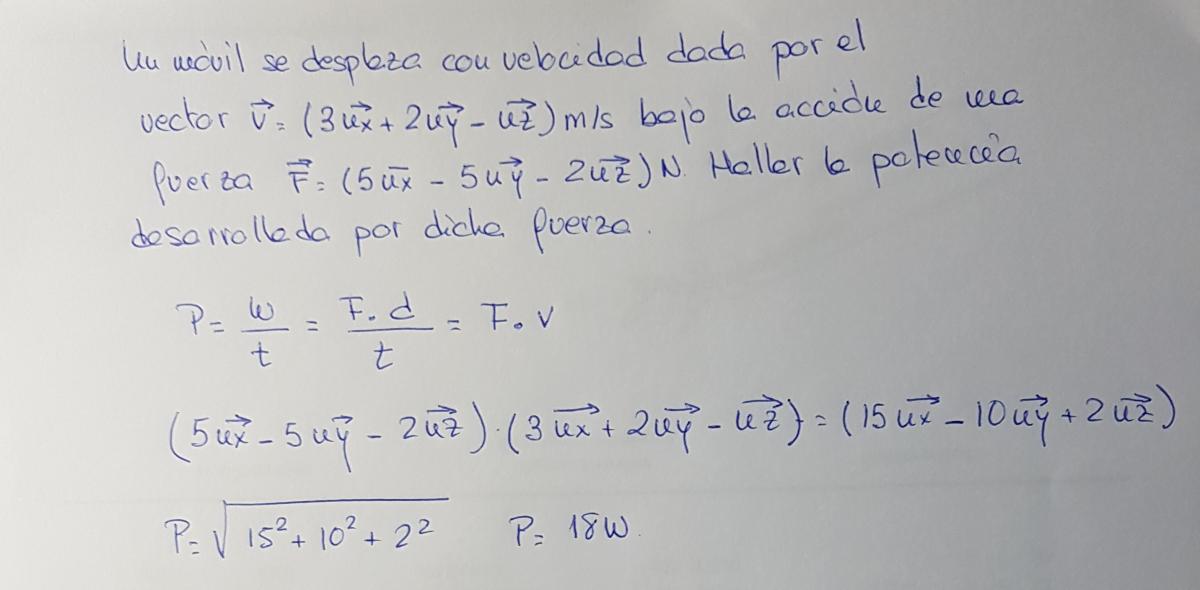 Un móvil se desplaza con velocidad dada por el
vector v⃗ = (3u⃗x + 2u⃗y - u⃗z) m/s bajo la acción de una
fuerza F⃗ = (5u̅x - 5u⃗y - 2u⃗z) N. Hallar la potencia
desarrollada por dicha fuerza.
P = w/t = F. d/t = F. v
(5u⃗x - 5u⃗y - 2u⃗z) · (3u⃗x + 2u⃗y - u⃗z) = (15u⃗x - 10u⃗y + 2u⃗z)
P = √(15² + 10² + 2²) P = 18W.